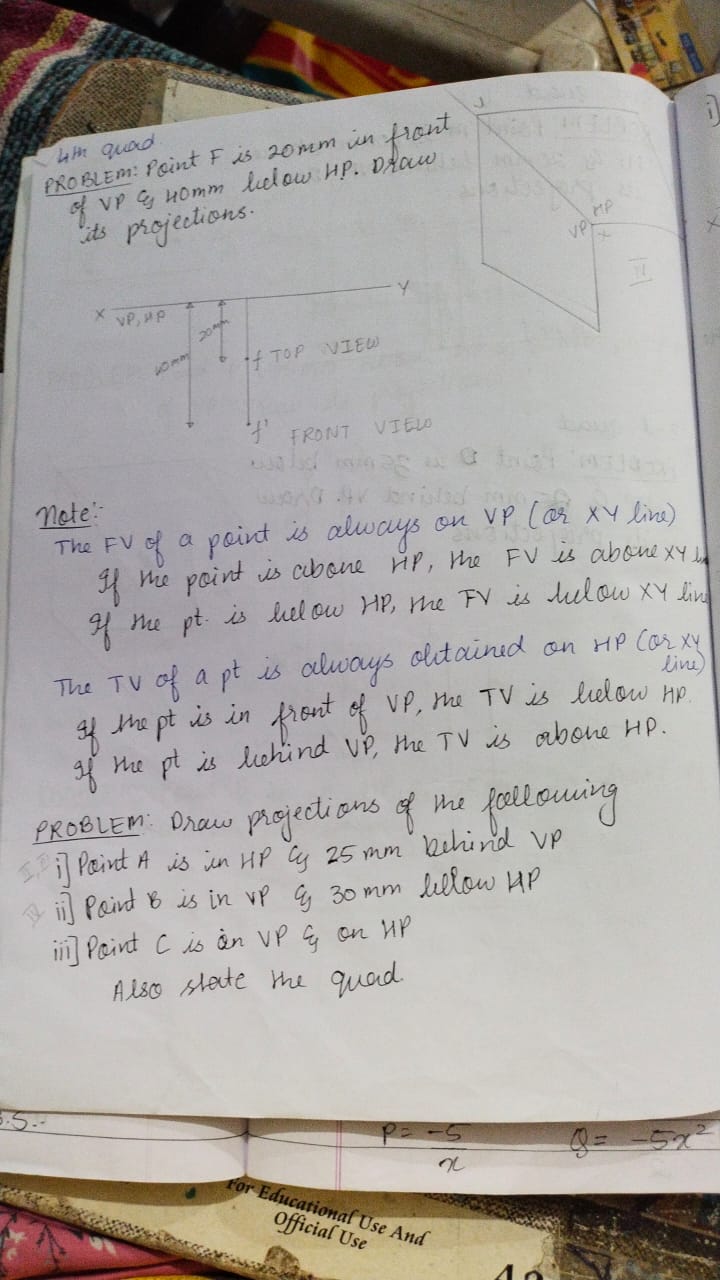 4th quad
PROBLEM: Point F is 20mm in front
of VP & 40mm below HP. Draw
its projections.
J
HP
VP
X
IV
X
VP, HP
Y
40mm
20mm
f TOP VIEW
f' FRONT VIEW
Note:-
The FV of a point is always on VP (or XY line)
If the point is above HP, the FV is above XY
If the pt. is below HP, the FV is below XY line
The TV of a pt is always obtained on HP (or XY
line)
If the pt is in front of VP, the TV is below HP.
If the pt is behind VP, the TV is above HP.
PROBLEM: Draw projections of the following
i] Point A is in HP & 25 mm behind VP
ii] Point B is in VP & 30 mm below HP
iii] Point C is on VP & on HP
Also state the quad.
i)
P = -5
x
Q = -5x²
For Educational Use And
Official Use